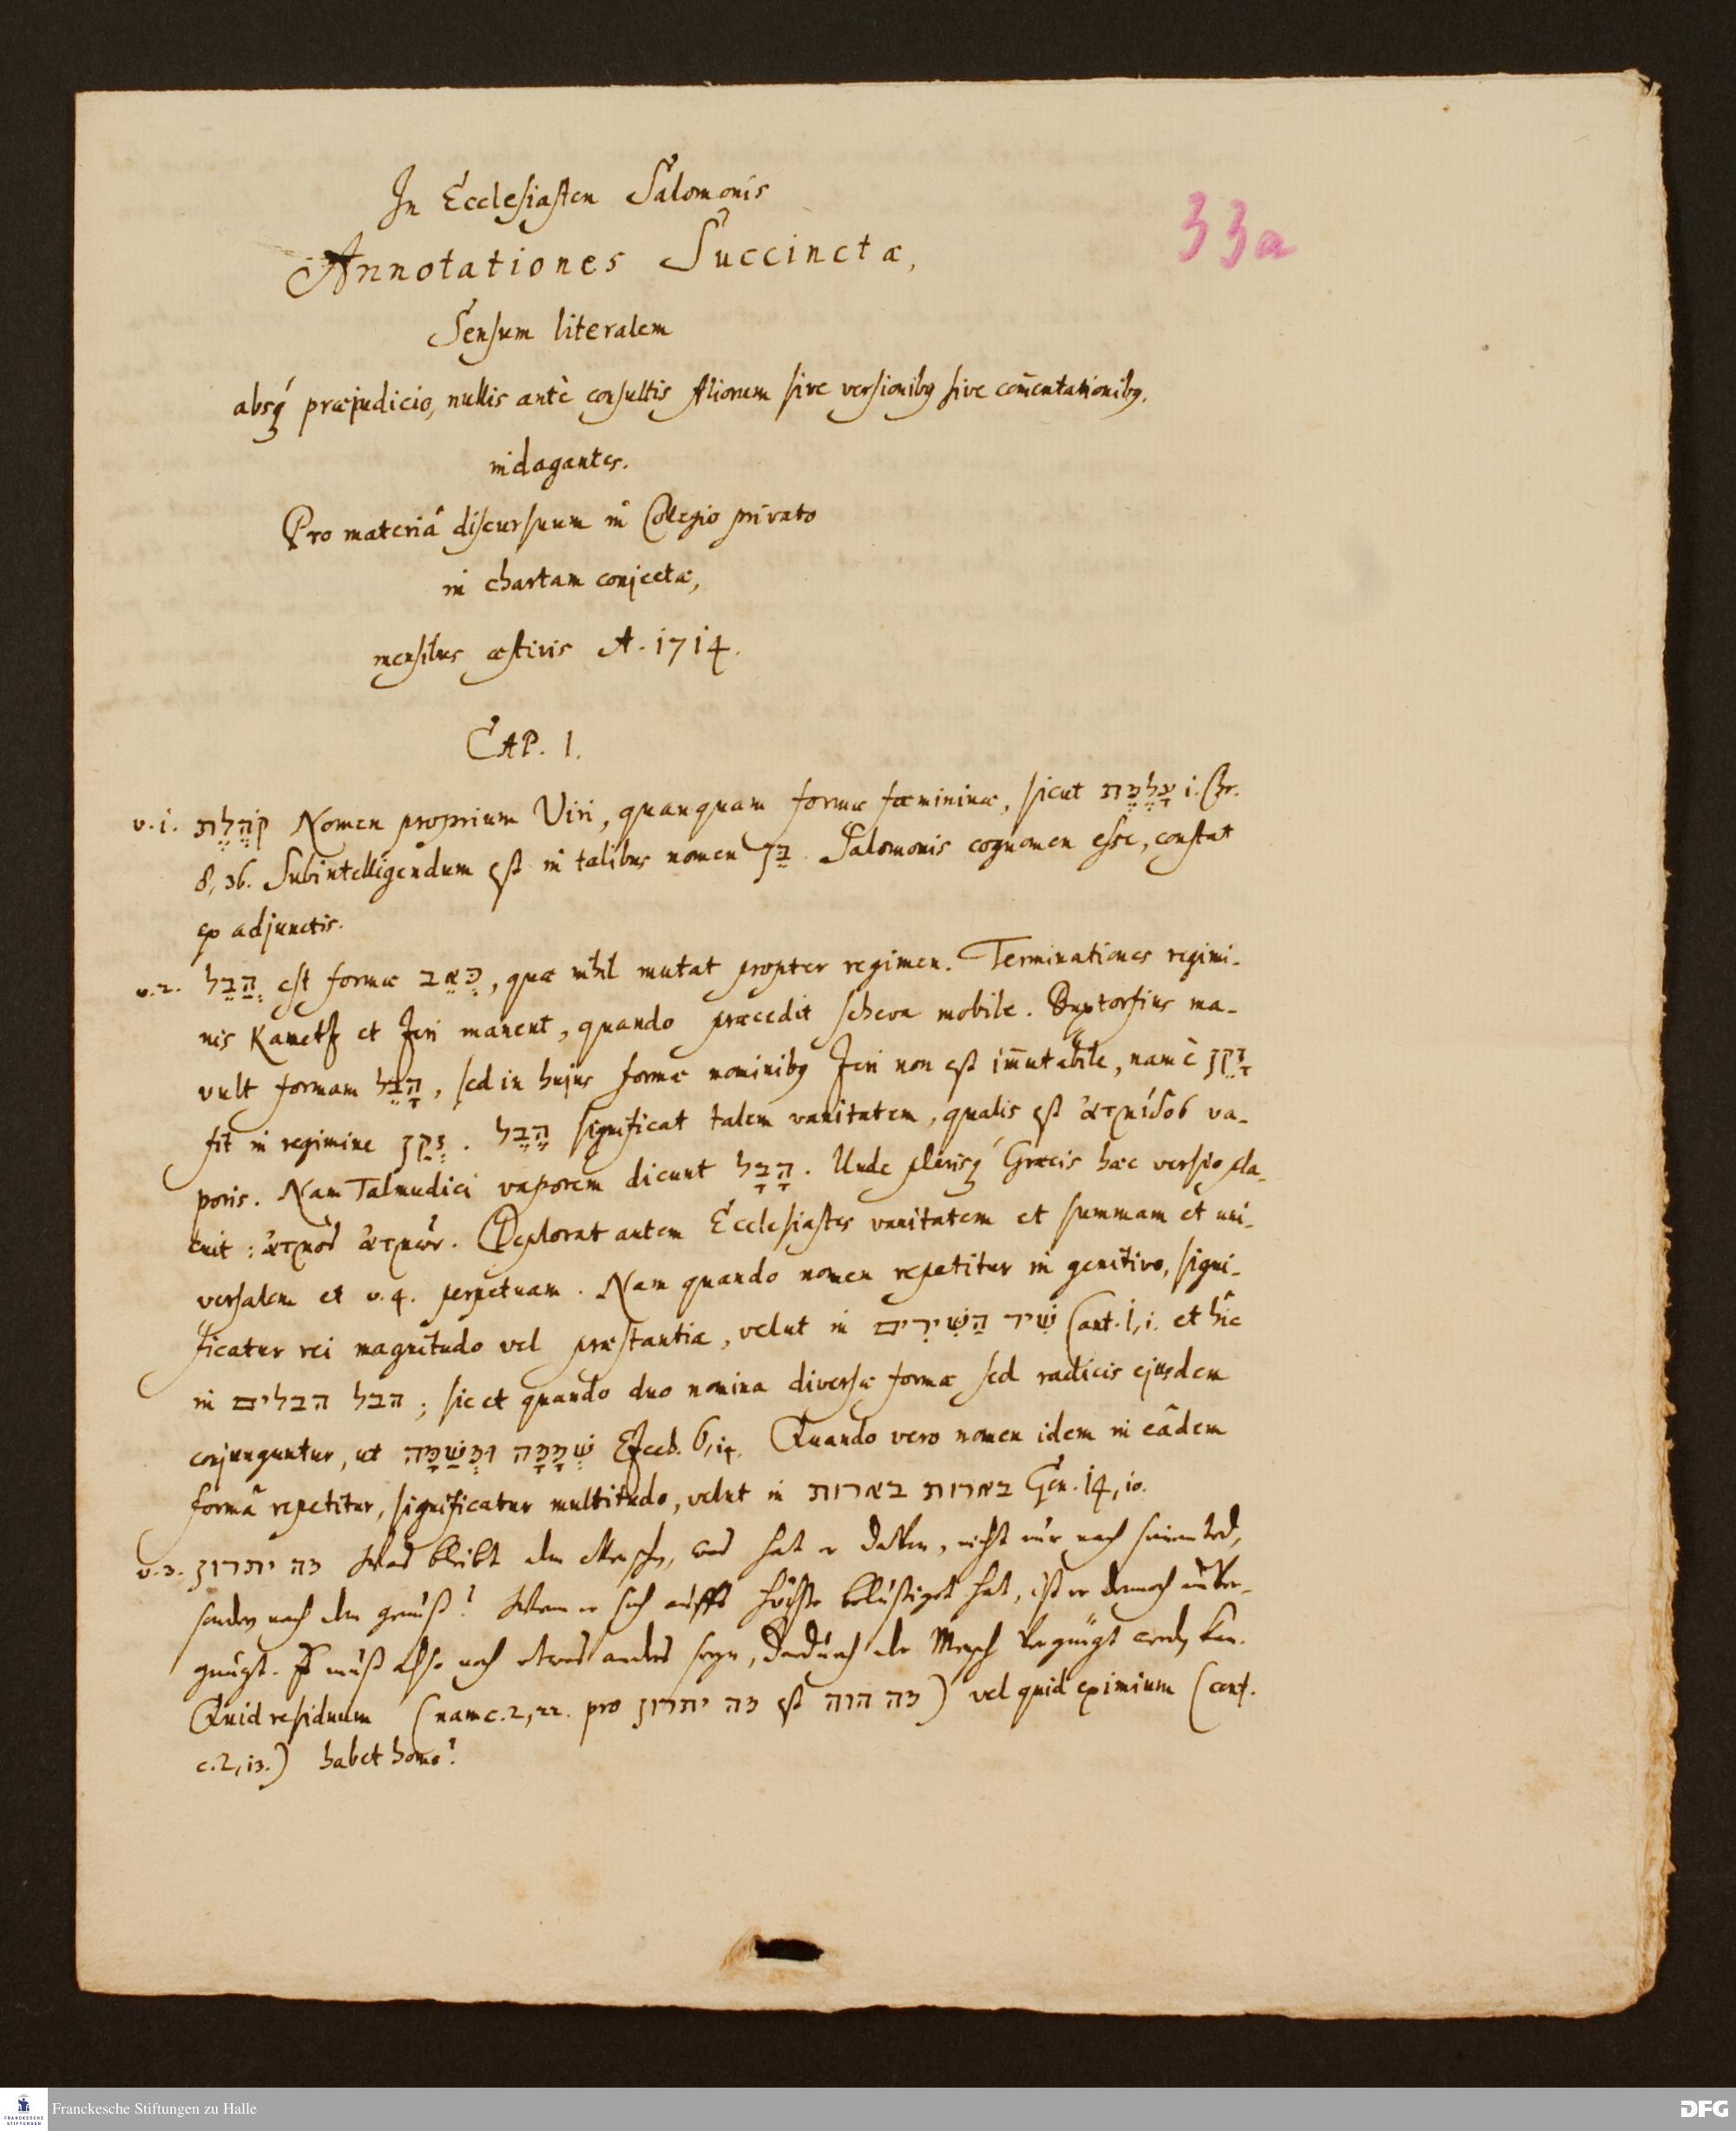 In Ecclesiasten Salomonis
33a
Annotationes Succinctæ,
Sensum literalem
absq́ præjudicio, nullis antè consultis Aliorum sive versionibꝰ sive com̃entationibꝰ,
indagantes.
Pro materiâ discursuum in Collegio privato
in chartam conjectæ,
mensibus æstivis A. 1714.
CAP. I.
v. 1. קֹהֶלֶת Nomen proprium Viri, quanquam formæ fœmininæ, sicut עָלֶמֶת 1. Chr.
8, 36. Subintelligendum est in talibus nomen בֵּן. Salomonis cognomen esse, constat
ex adjunctis.
v. 2. הֲבֵל est formæ כְּאֵב, quæ nihil mutat propter regimen. Terminationes regimi-
nis Kametz et Zeri manent, quando præcedit scheva mobile. Buxtorfius ma-
vult formam הָבֵל, sed in hujus formæ nominibꝰ Zeri non est im̃utabile, nam è זָקֵן
fit in regimine זְקַן. הֶבֶל significat talem vanitatem, qualis est ἀτμίδος va-
poris. Nam Talmudici vaporem dicunt הָבָל. Unde plerisq́ Græcis hæc versio pla-
cuit: ἀτμὸς ἀτμῶν. Deplorat autem Ecclesiastes vanitatem et summam et uni-
versalem et v. 4. perpetuam. Nam quando nomen repetitur in genitivo, signi-
ficatur rei magnitudo vel præstantia, velut in שִׁיר הַשִּׁירִים Cant. 1, 1. et hîc
in הבל הבלים; sic et quando duo nomina diversæ formæ sed radicis ejusdem
conjunguntur, ut שְׁמָמָה וּמְשַׁמָּה Ezech. 6, 14. Quando vero nomen idem in eâdem
formâ repetitur, significatur multitudo, velut in בארות בארות Gen. 14, 10.
v. 3. מה יתרון Was bleibt dem Menschen, was hat er davon, nicht nur nach seinem Tod,
sondern nach dem genuß? Wenn er sich auffs höchste belustiget hat, ist er dennoch unver-
gnügt. Es muß also noch etwas anders seyn, dadurch der Mensch vergnügt werden kan.
Quid residuum (nam c. 2, 22. pro מה יתרון est מה הוה) vel quid eximium (conf.
c. 2, 13.) habet homo?
Franckesche Stiftungen zu Halle
FRANCKESCHE STIFTUNGEN
DFG